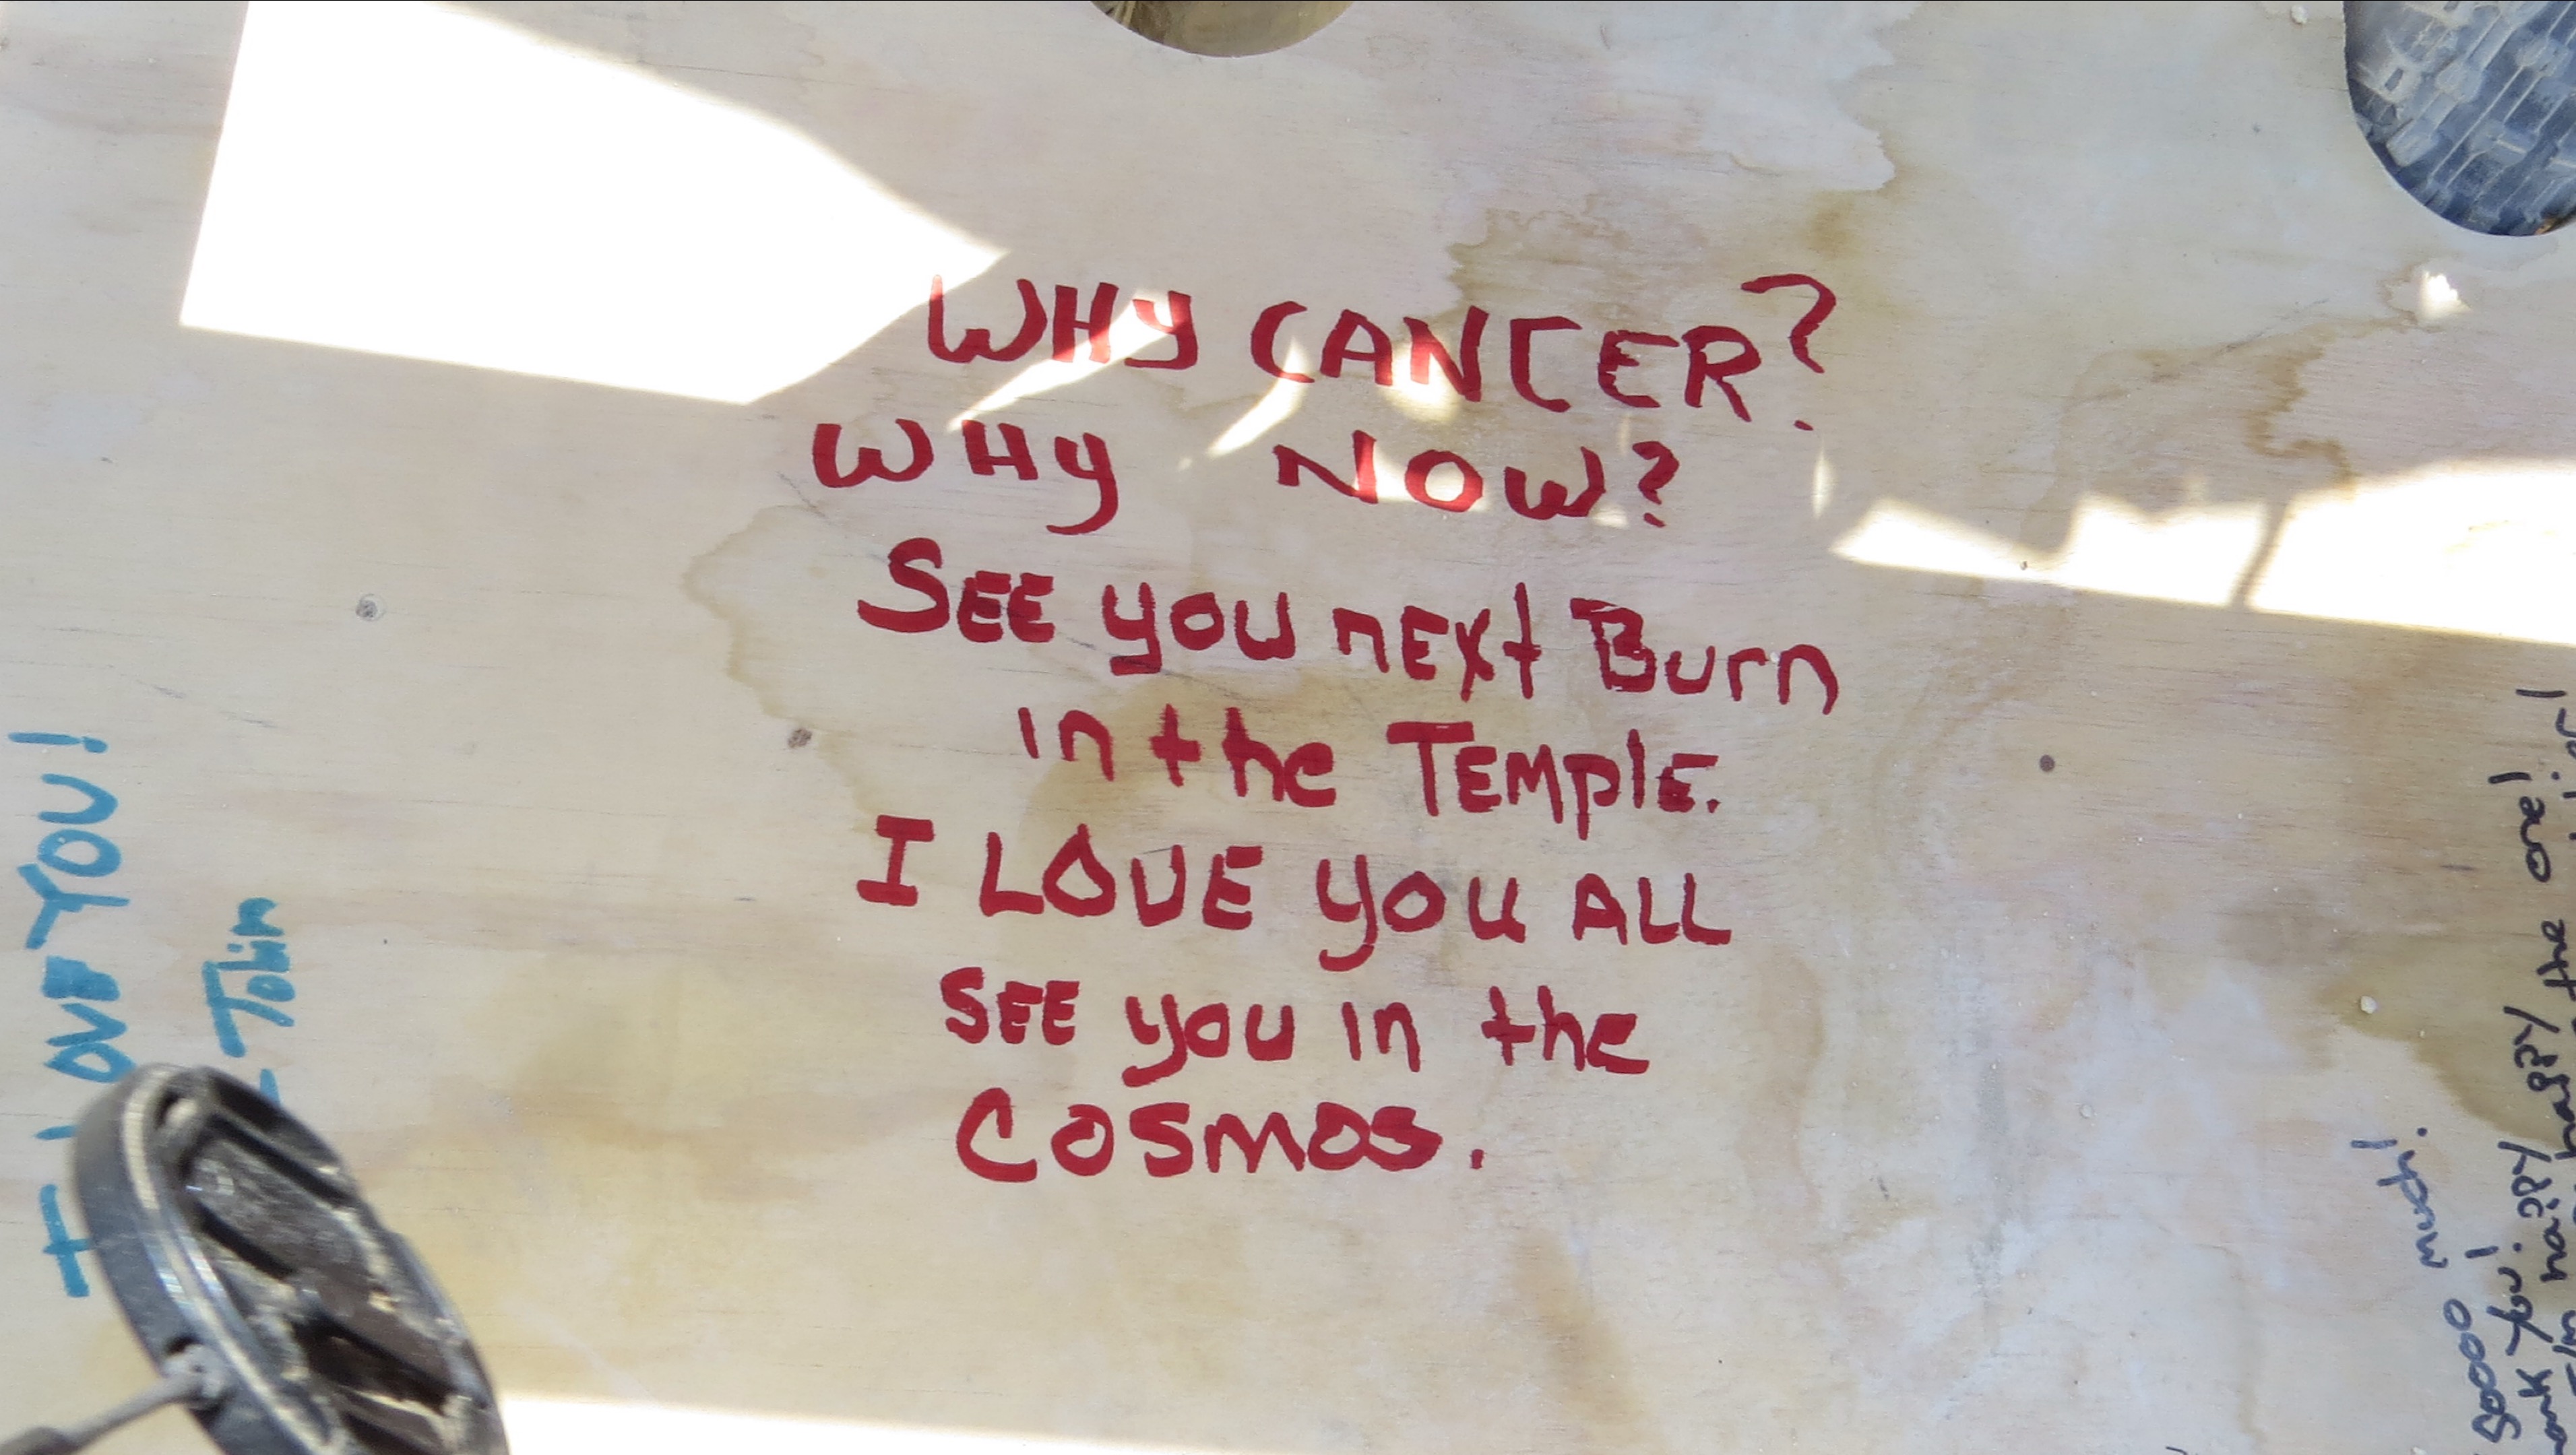 WHY CANCER?
WHY NOW?
SEE YOU nEXt Burn
in the TEMplE.
I LOVE YOU ALL
SEE you in the
COSMOS.
I LOVE YOU!
- Tobin
soooo much!
You!
happy the one!